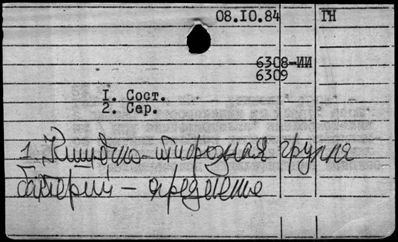 08.10.84 ГН
6308-ИИ
6309
I. Сост.
2. Сер.
1. Кишечно-тифозная группа
бактерий - определение